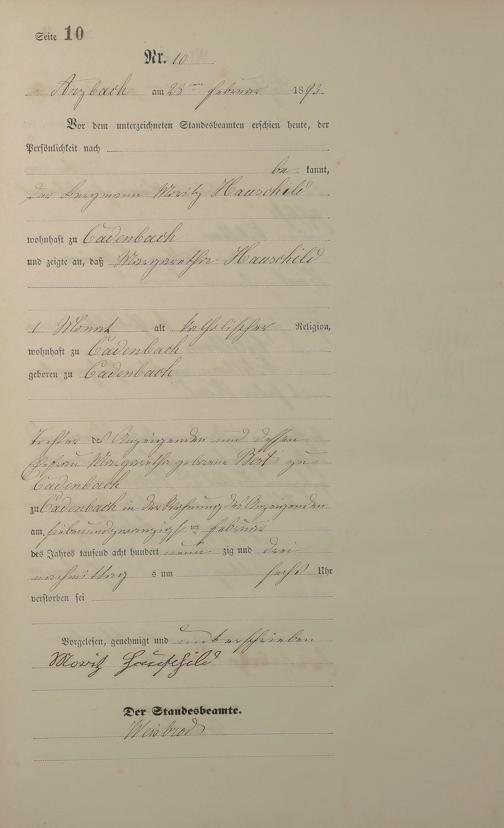 Seite 10
Nr. 10
Arzbach am 28ten Februar 1893.
Vor dem unterzeichneten Standesbeamten erschien heute, der
Persönlichkeit nach
be kannt,
der Bergmann Moritz Hauschild
wohnhaft zu Cadenbach
und zeigte an, daß Margaretha Hauschild
1 Monat alt katholischer Religion,
wohnhaft zu Cadenbach
geboren zu Cadenbach
Tochter des Anzeigenden und dessen
Ehefrau Margaretha geborene zu
Cadenbach
zu Cadenbach in der Wohnung des Anzeigenden
am siebenundzwanzigsten Februar
des Jahres tausend acht hundert neun zig und drei
nachmittag s um sechs Uhr
verstorben sei
Vorgelesen, genehmigt und unterschrieben
Moritz Hauschild
Der Standesbeamte.
Weisbrod